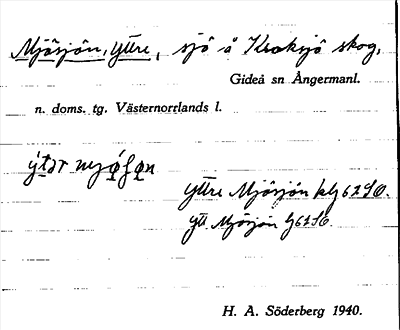 Mjösjön, Yttre, sjö å Kroksjö skog,
Gideå sn Ångermanl.
n. doms. tg. Västernorrlands l.
Yttre Mjösjön
Ytt. Mjösjön
H. A. Söderberg 1940.